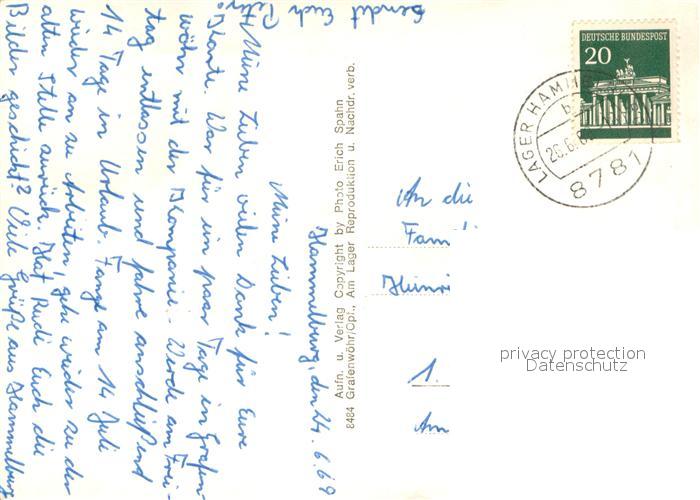 Hammelburg, den 24.6.69
Meine Lieben!
Meine Lieben vielen Dank für Eure
Karte. War für ein paar Tage in Grafen-
wöhr mit der Kompanie. Werde am Frei-
tag entlassen und fahre anschließend
14 Tage in Urlaub. Fange am 14 Juli
wieder an zu Arbeiten, gehe wieder zu der
alten Stelle zurück. Hat Rudi Euch die
Bilder geschickt? Viele Grüße aus Hammelburg
sendet Euch Peter
Aufn. u. Verlag Copyright by Photo Erich Spahn
8484 Grafenwöhr/Opf., Am Lager Reproduktion u. Nachdr. verb.
DEUTSCHE BUNDESPOST
20
LAGER HAMM
b
26.6.6
8781
An die
Fam
Heinri
1.
Am
privacy protection
Datenschutz